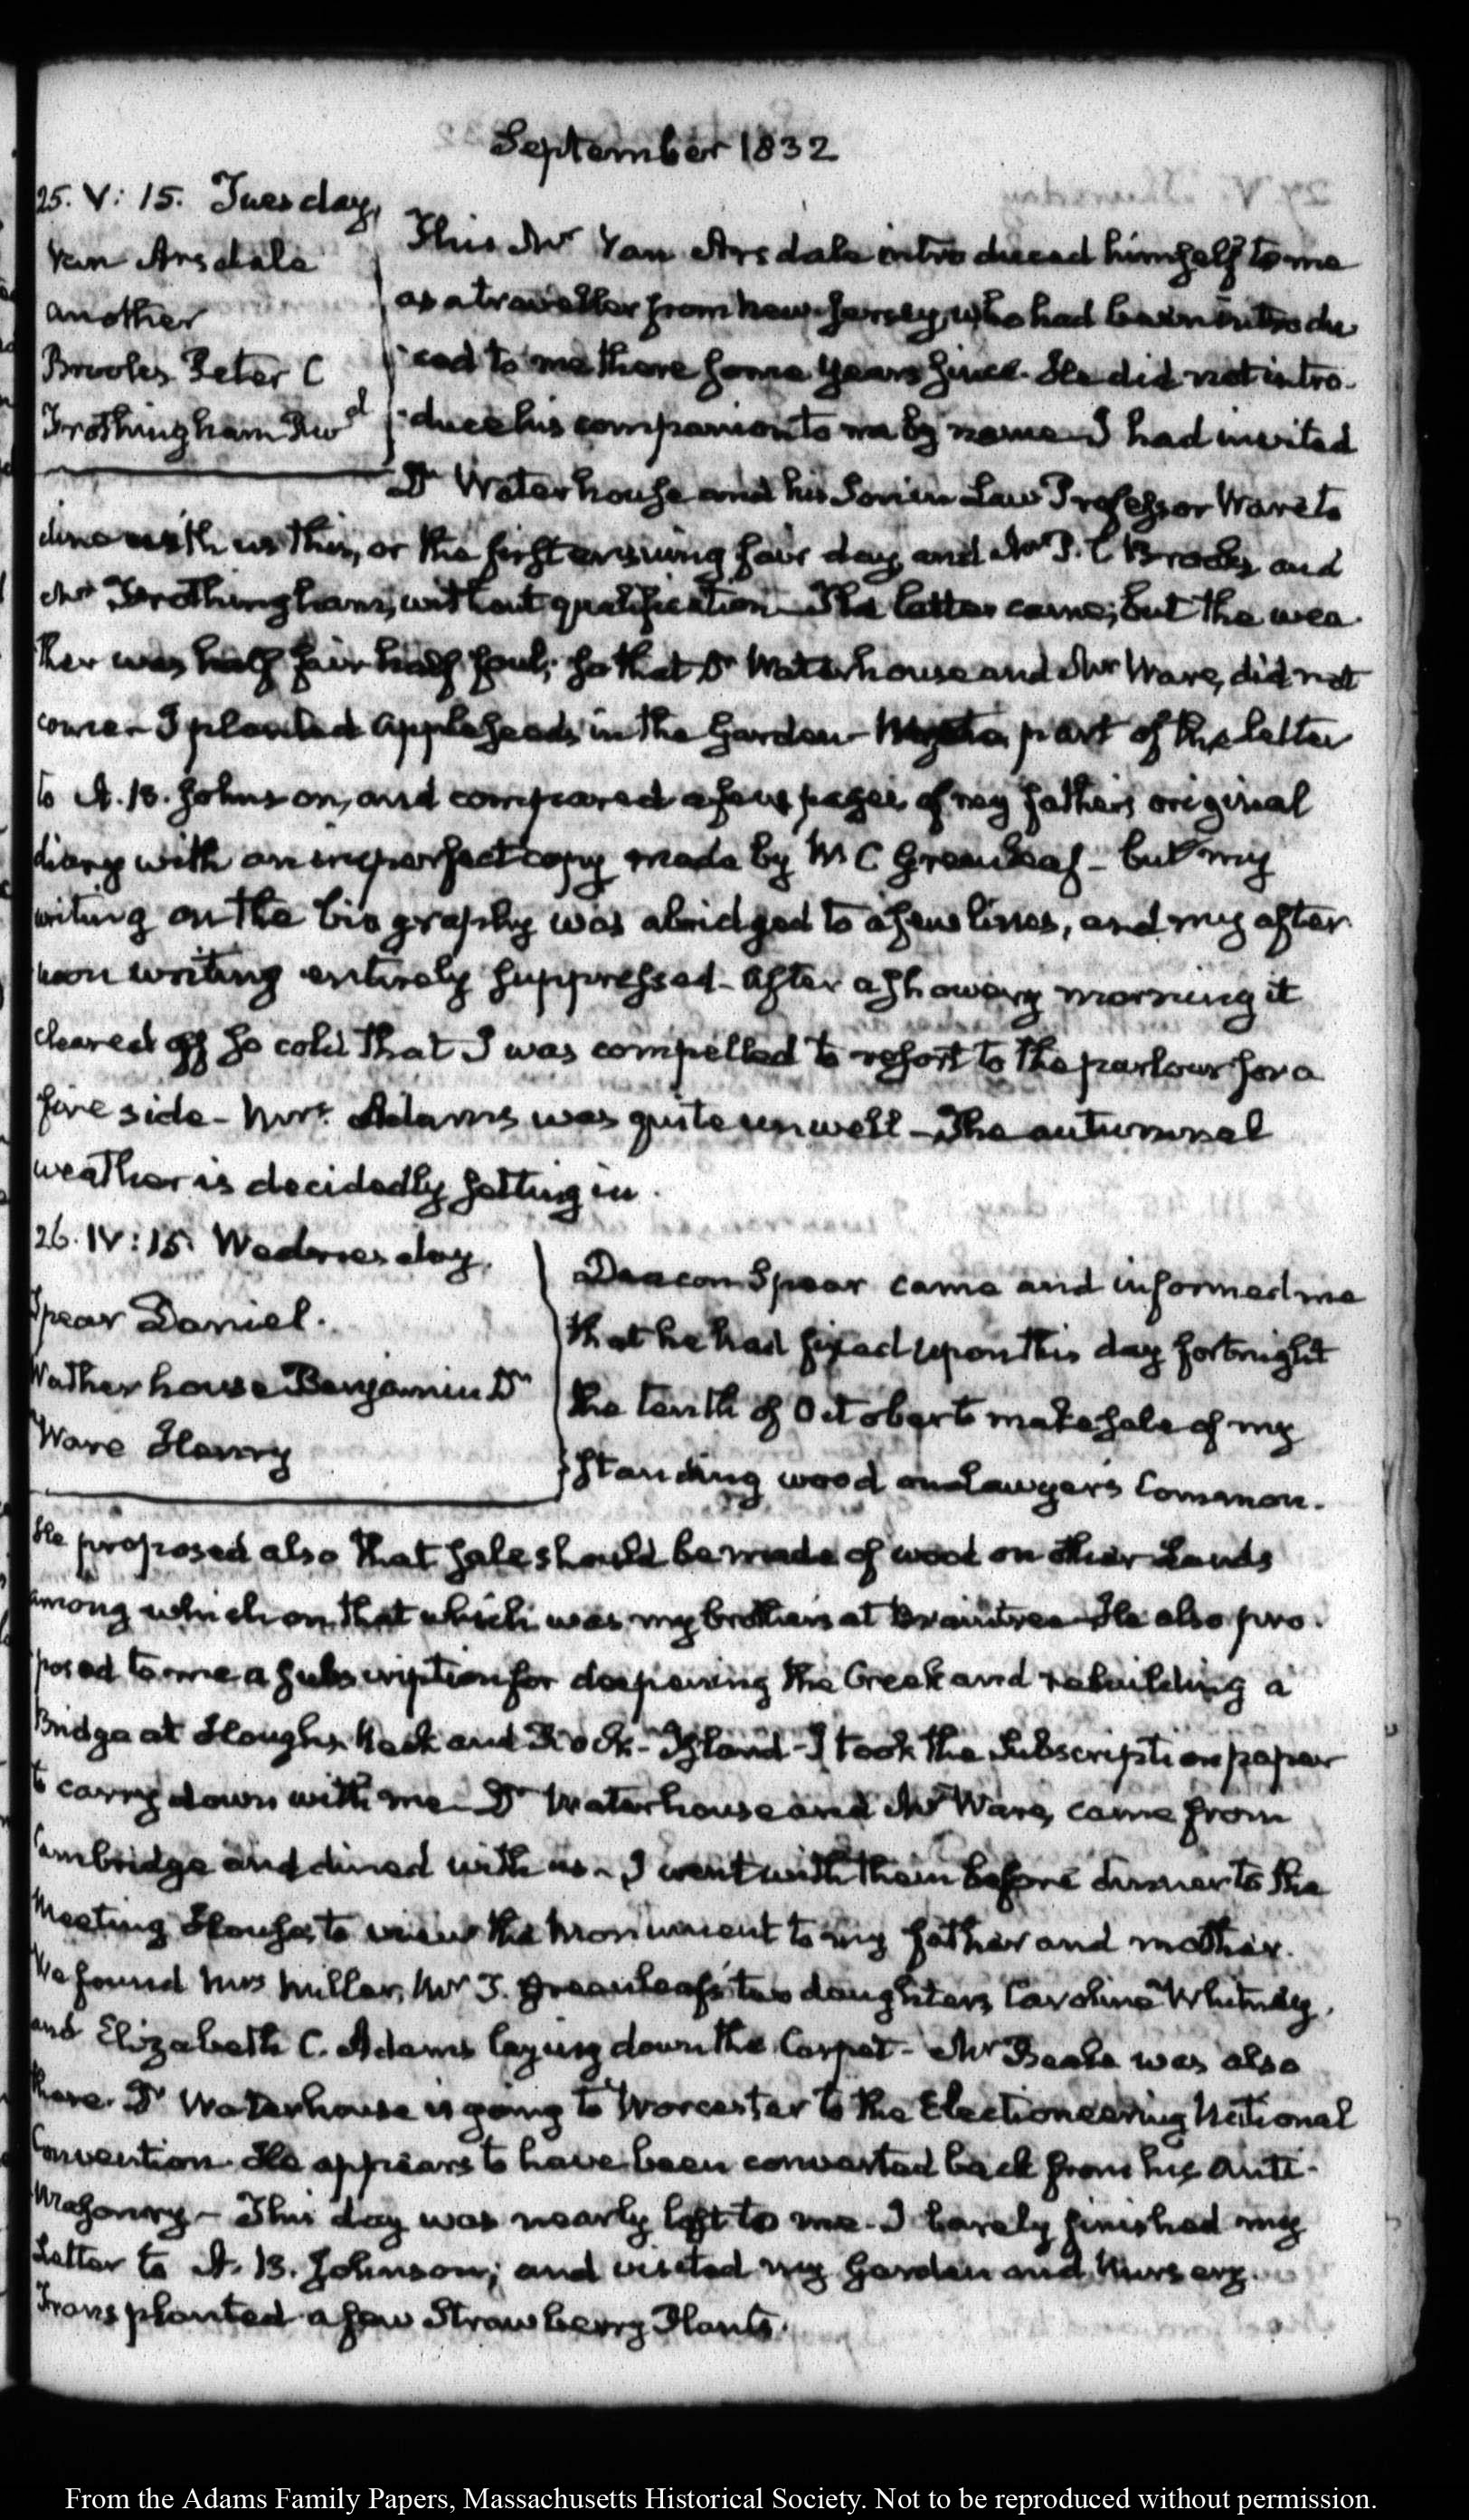 September 1832
25. V: 15. Tuesday,
Van Arsdale
another
Brooks Peter C
Frothingham Edwd
This Mr Van Arsdale introduced himself to me
as a traveller from New-Jersey, who had been introdu
ced to me there some years since. He did not intro-
duce his companion to me by name. I had invited
Dr Waterhouse and his Son in Law Professor Ware to
dine with us this, or the first ensuing fair day, and Mr P. C Brooks and
Mr Frothingham, without qualification. The latter came; but the wea
ther was half fair half foul; so that Dr Waterhouse and Mr Ware, did not
come. I planted appleseeds in the Garden – Wrote part of the letter
to A. B. Johnson, and compared a few pages of my father's original
diary with an imperfect copy made by M C Greenleaf – but my
writing on the biography was abridged to a few lines, and my after
noon writing entirely suppressed – After a showery morning it
cleared off so cold that I was compelled to resort to the parlour for a
fire side – Mrs. Adams was quite unwell – The autumnal
weather is decidedly setting in.
26. IV: 15. Wednesday.
Spear Daniel.
Watherhouse Benjamin Dr
Ware Henry
Deacon Spear came and informed me
that he had fixed upon this day fortnight
the tenth of October to make sale of my
standing wood on Lawyer's Common.
He proposed also that sale should be made of wood on other Lands
among which on that which was my brother's at Braintree – He also pro
posed to me a subscription for deepening the Creek and rebuilding a
Bridge at Hough's Neck and Rock-Island – I took the Subscription paper
to carry down with me – Dr Waterhouse and Mr Ware, came from
Cambridge and dined with us – I went with them before dinner to the
Meeting House, to view the Monument to my father and mother.
We found Mrs Miller, Mr T. Greenleaf's two daughters, Caroline Whitney,
and Elizabeth C. Adams laying down the Carpet – Mr Beale was also
there. Dr Waterhouse is going to Worcester to the Electioneering National
Convention. He appears to have been converted back from his Anti-
Masonry – This day was nearly lost to me. I barely finished my
Letter to A. B. Johnson; and visited my Garden and Nursery.
Transplanted a few Strawberry Plants.
From the Adams Family Papers, Massachusetts Historical Society. Not to be reproduced without permission.